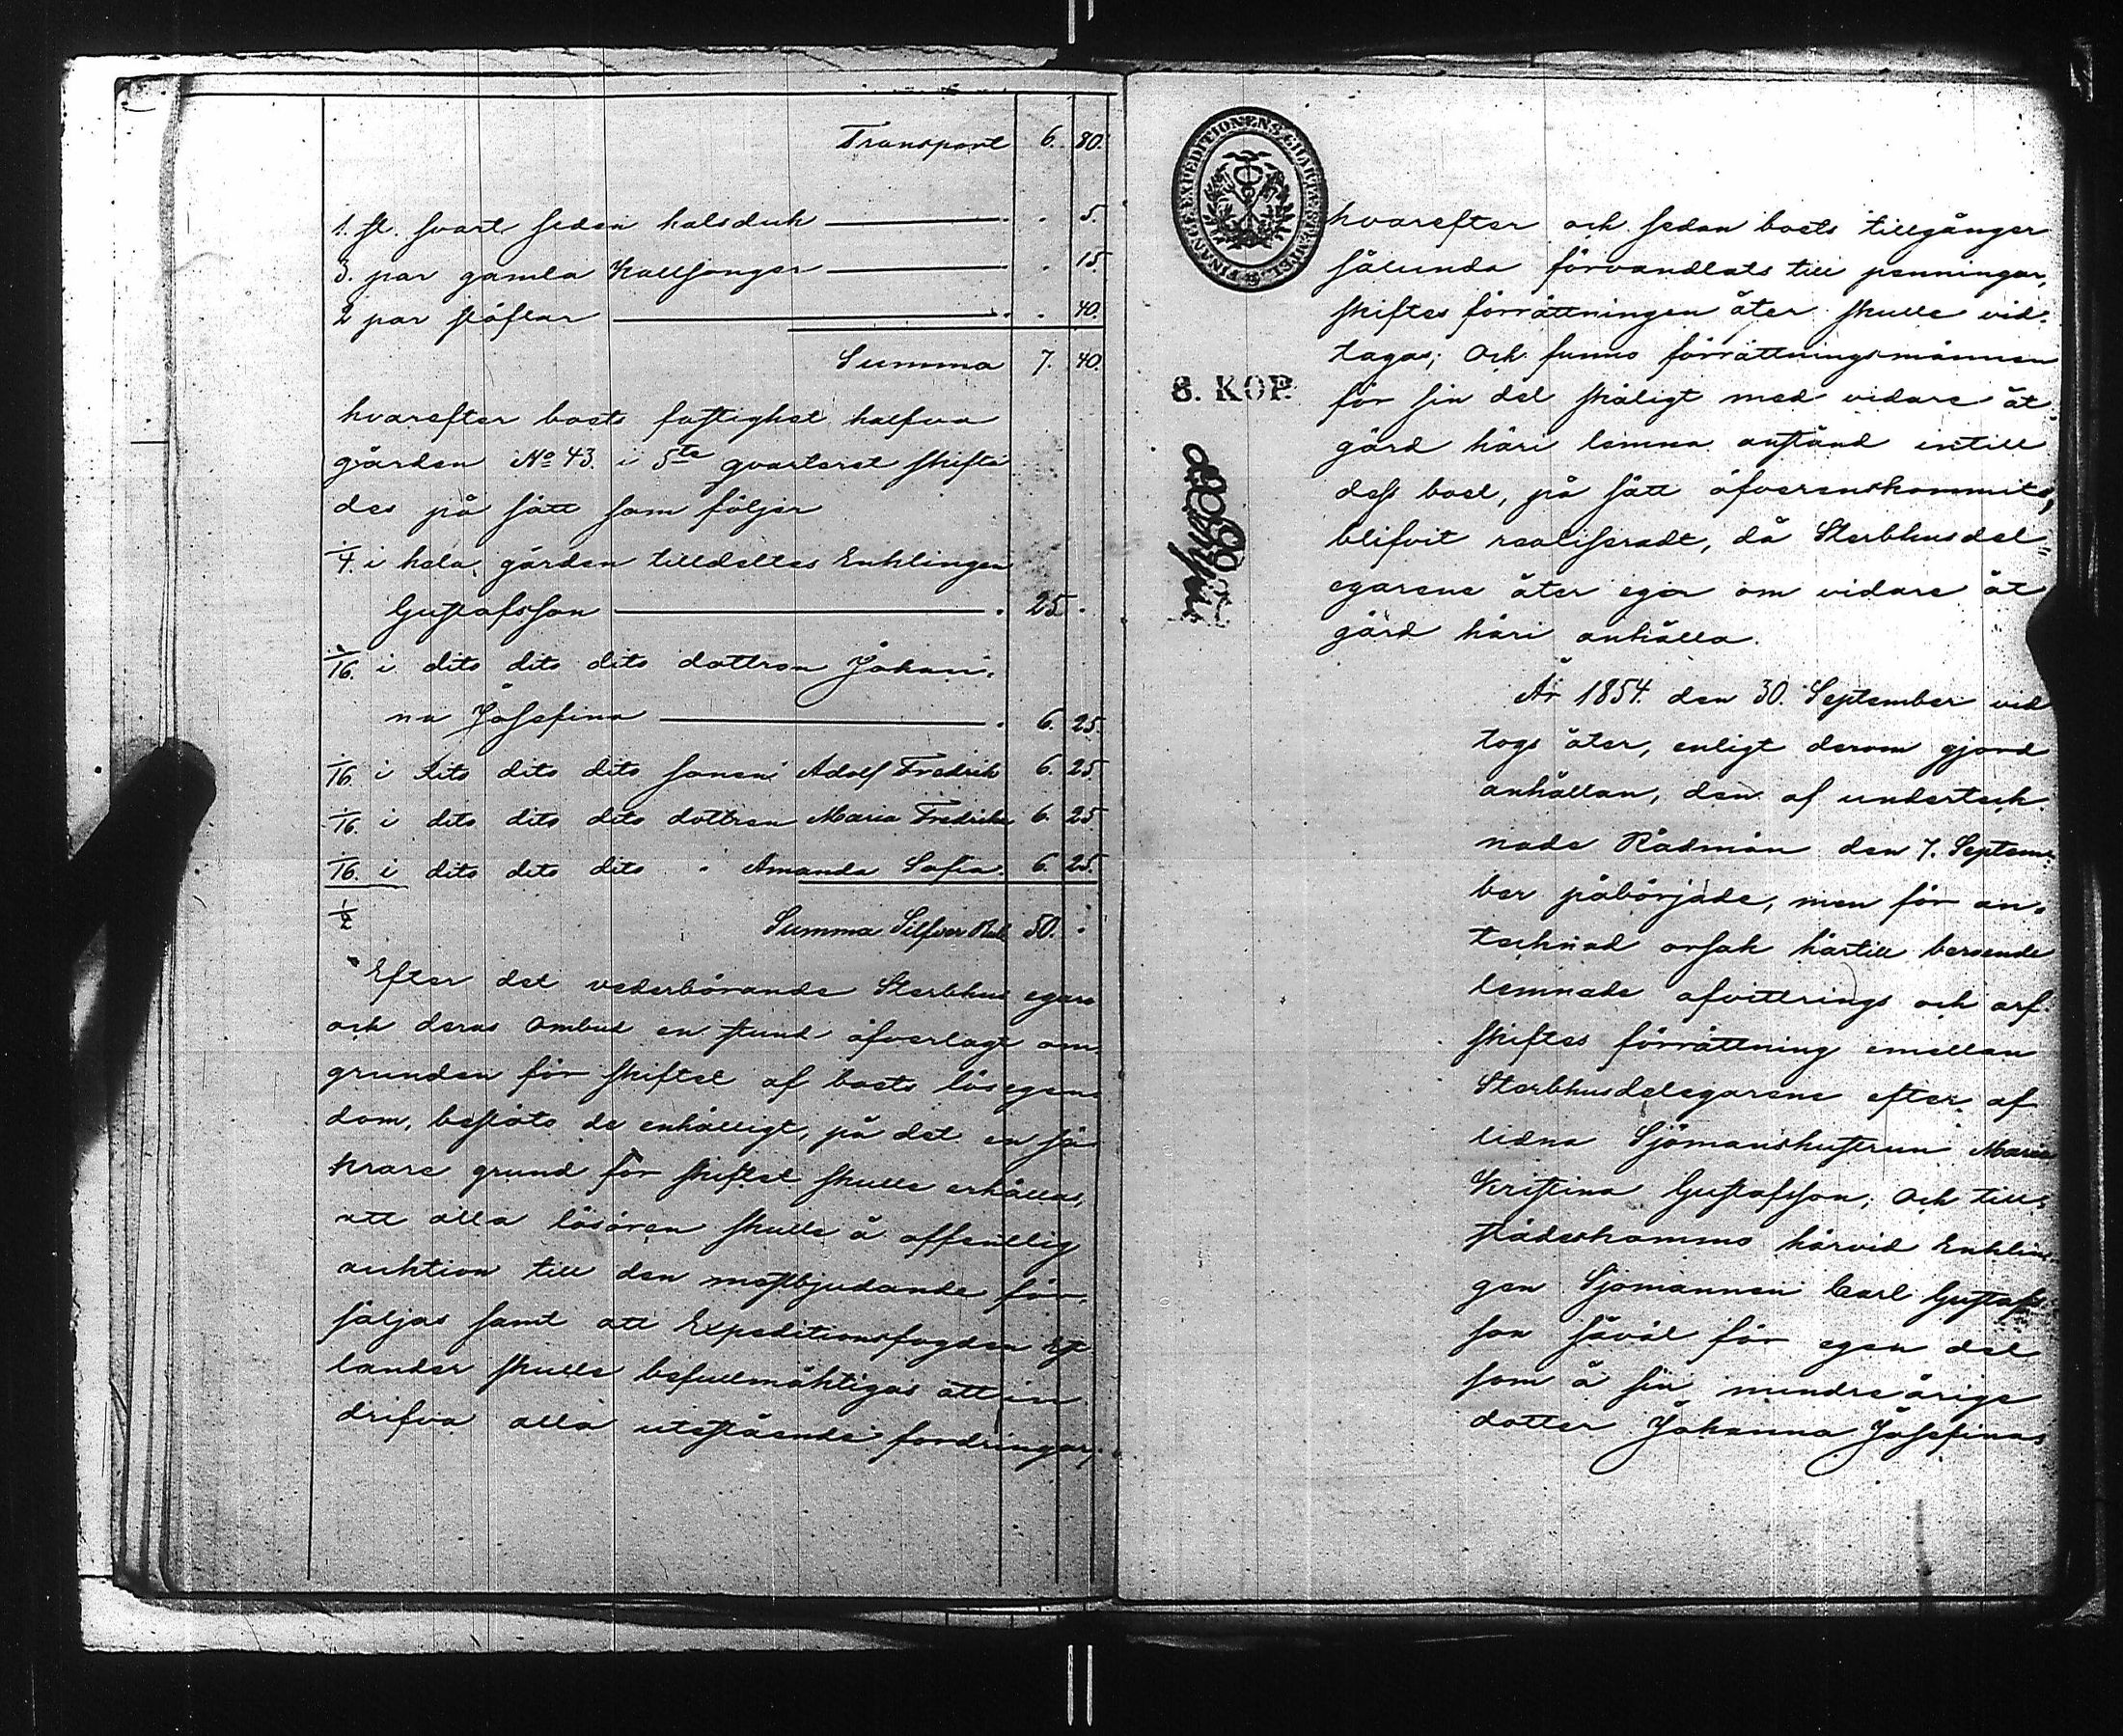 Transport 6. 80.
1. st. svart seden halsduk . 5.
3. par gamla Kallsonger . 15.
2 par stöflar . 40.
Summa 7. 40.
hvarefter boets fastighet halfva
gården No 43. i 5te qvarteret skifta
des på sätt som följer
1/4. i hela gården tilldeltes Enklingen
Gustafsson 25 .
1/16. i dito dito dito dottren Johan¨
na Josefina 6. 25.
1/16. i dito dito dito sonen Adolf Fredrik 6. 25
1/16. i dito dito dito dottren Maria Fredrika 6. 25.
1/16. i dito dito dito " Amanda Sofia. 6. 25.
1/2 Summa Silfver Rub 50. .
Efter det vederbörande Sterbhus egare
och deras Ombud en stund öfverlagt om
grunden för skiftet af boets lösegen¨
dom, beslöto de enhälligt, på det en sä
krare grund för skiftet skulle erhållas,
att alla lösören skulle å offentlig
auktion till den mestbjudande för¨
säljas samt att Expeditionsfogden
lander skulle befullmäktigas att in
drifva alla utestående fordringar,
FINANCE EXPEDITIONENS CHARTÆ STEMPEL
8. KOP.
hvarefter och sedan boets tillgånger
sålunda förvandlats till penningar,
skiftes förrättningen åter skulle vid¨
tagas; Och funno förrättningsmännen
för sin del skäligt med vidare åt
gärd häri lemna anstånd intill
dess boet, på sätt öfverenskommits,
blifvit realiseradt, då Sterbhusdel¨
egarene åter ega om vidare åt
gärd häri anhålla.
År 1854. den 30. September vid
togs åter, enligt derom gjord
anhållan, den af underteck
nade Rådman den 7. Septem¨
ber påbörjade, men för an¨
tecknad orsak härtill beroende
lemnade afvittrings och arf¨
skiftes förrättning emellan
Sterbhusdelegarene efter af
lidna Sjömanshustrun Maria
Kristina Gustafsson; Och till¨
städeskommo härvid Enklin
gen Sjömannen Carl Gustafs
son såväl för egen del
som å sin minderåriga
dotter Johanna Josefinas